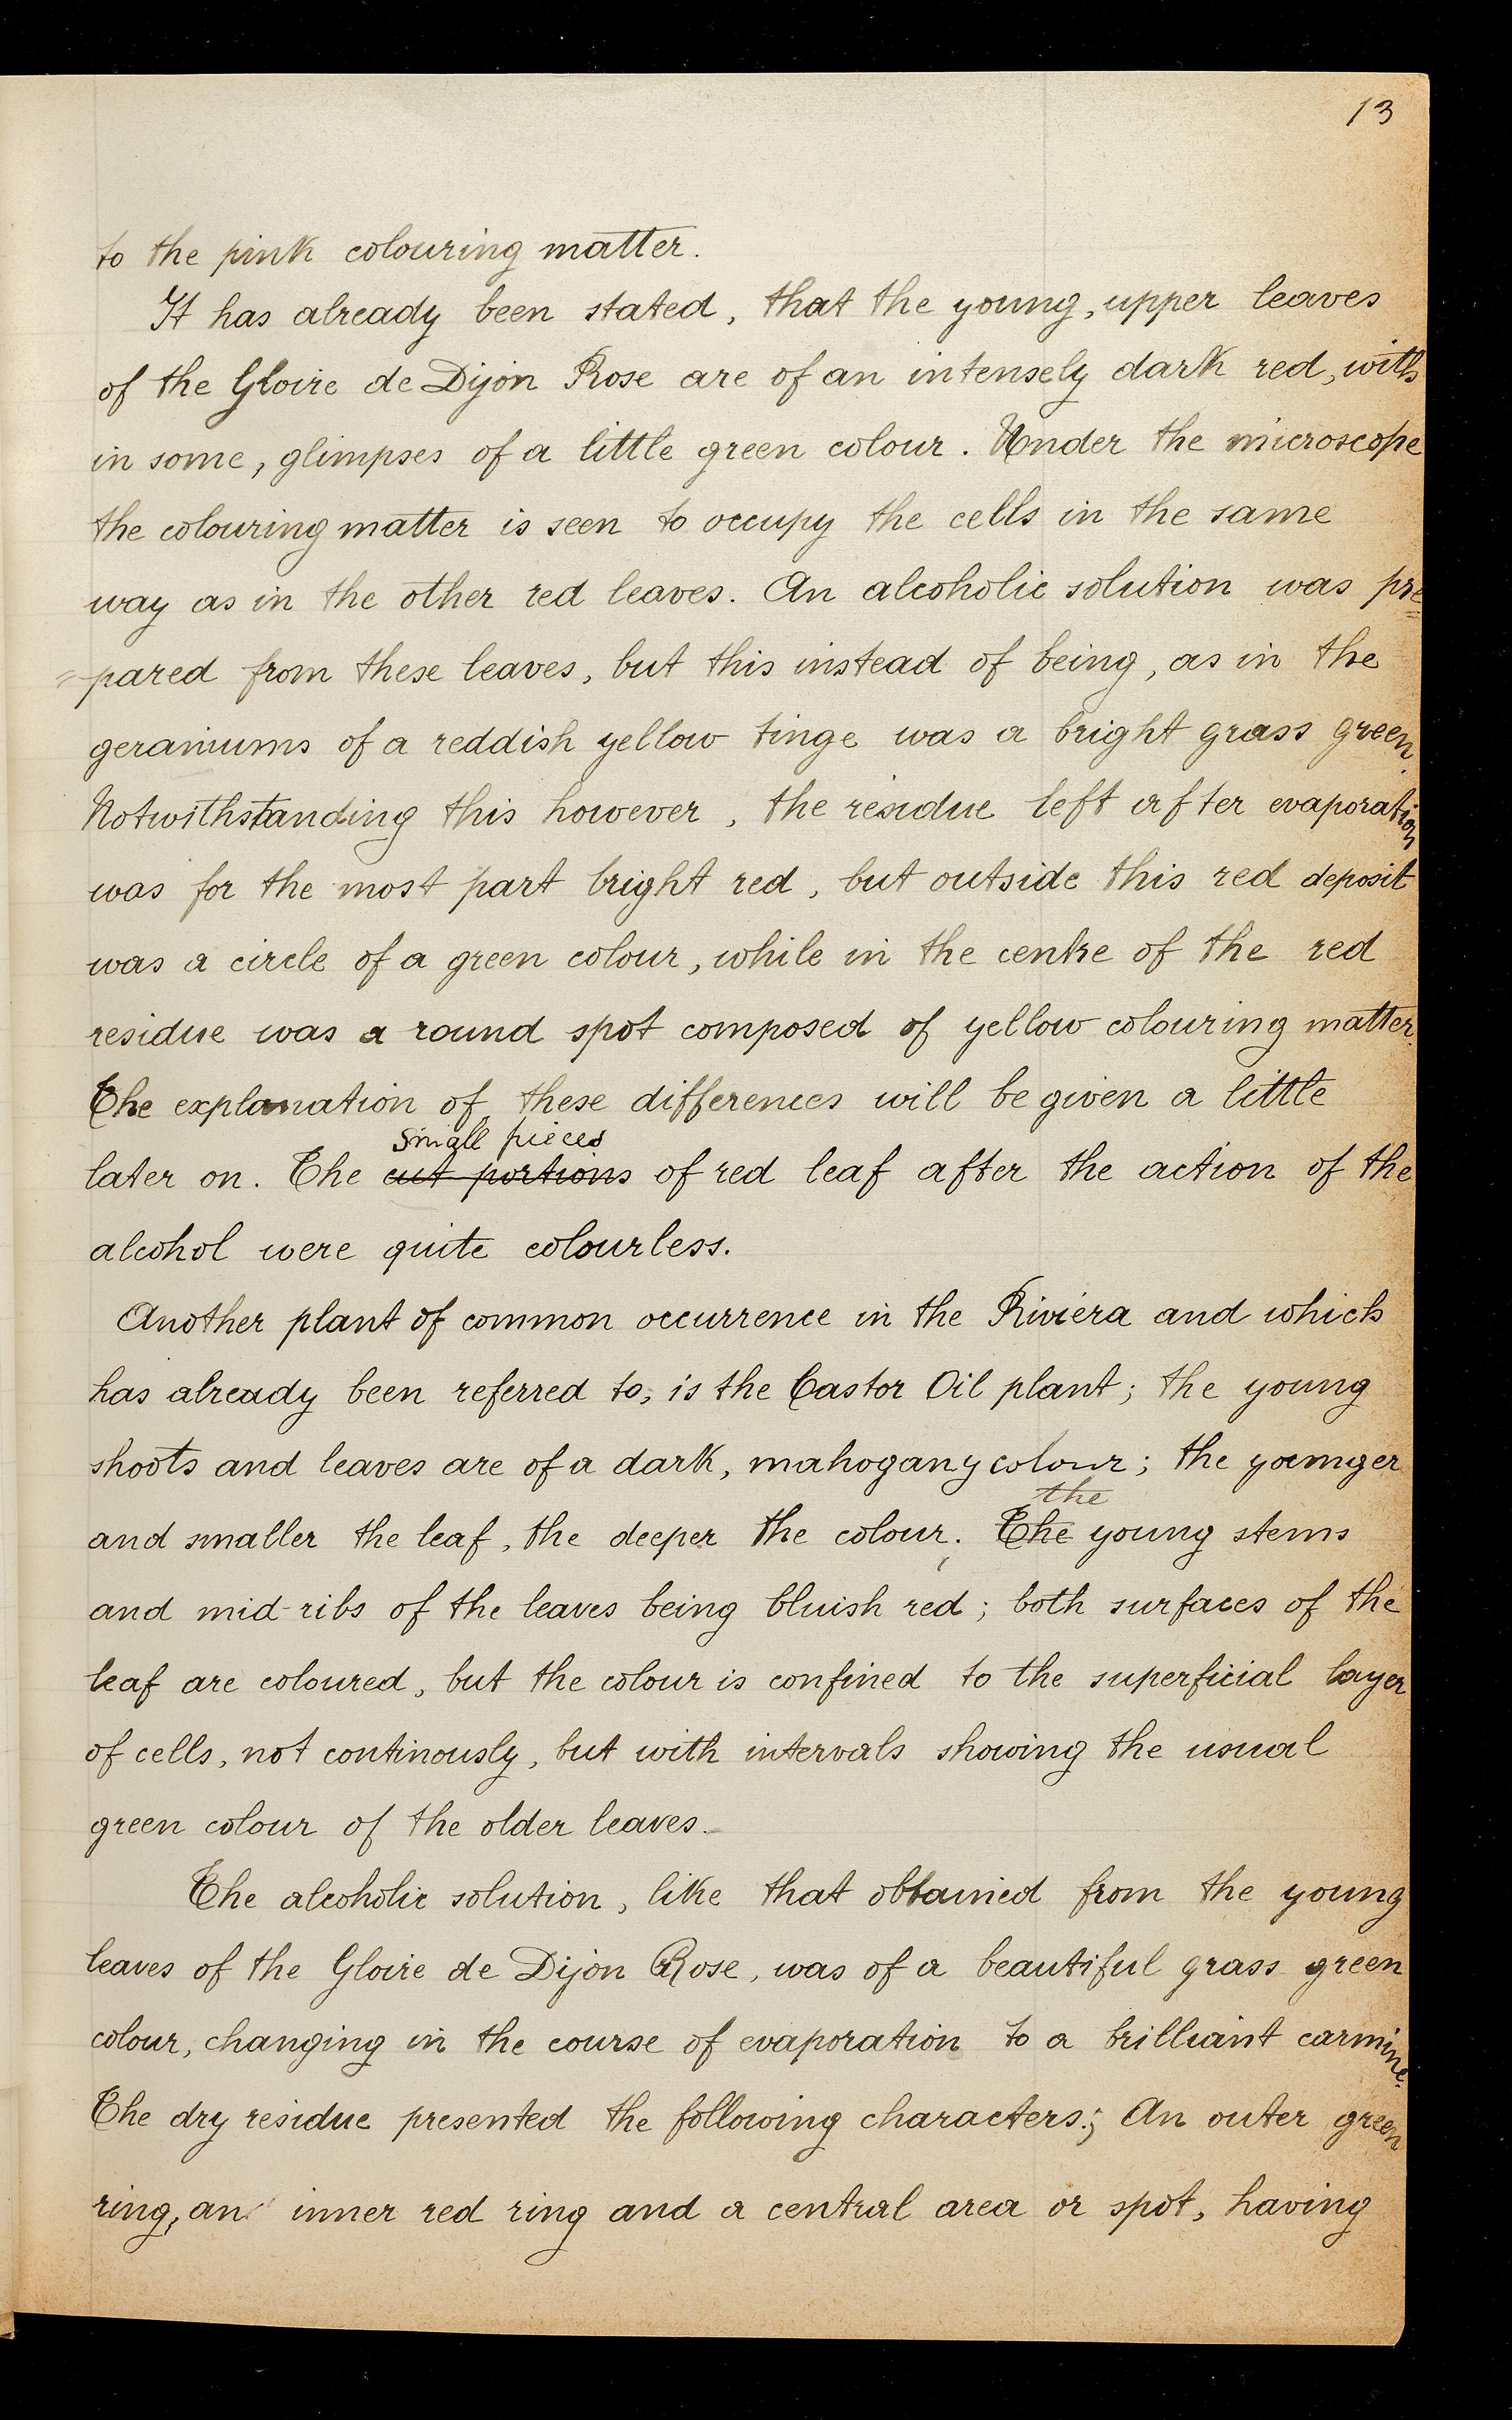 13
to the pink colouring matter.
It has already been stated, that the young, upper leaves
of the Gloire de Dijon Rose are of an intensely dark red, with
in some, glimpses of a little green colour. Under the microscope
the colouring matter is seen to occupy the cells in the same
way as in the other red leaves. An alcoholic solution was pre=
=pared from these leaves, but this instead of being, as in the
geraniums of a reddish yellow tinge was a bright grass green.
Notwithstanding this however, the residue left after evaporation
was for the most part bright red, but outside this red deposit
was a circle of a green colour, while in the centre of the red
residue was a round spot composed of yellow colouring matter.
The explanation of these differences will be given a little
small pieces
later on. The cut portions of red leaf after the action of the
alcohol were quite colourless.
Another plant of common occurrence in the Riviera and which
has already been referred to, is the Castor Oil plant; the young
shoots and leaves are of a dark, mahogany colour; the younger
the
and smaller the leaf, the deeper the colour; The young stems
and mid-ribs of the leaves being bluish red; both surfaces of the
leaf are coloured, but the colour is confined to the superficial layer
of cells, not continously, but with intervals showing the usual
green colour of the older leaves.
The alcoholic solution, like that obtained from the young
leaves of the Gloire de Dijon Rose, was of a beautiful grass green
colour, changing in the course of evaporation to a brilliant carmine.
The dry residue presented the following characters; An outer green
ring, an inner red ring and a central area or spot, having